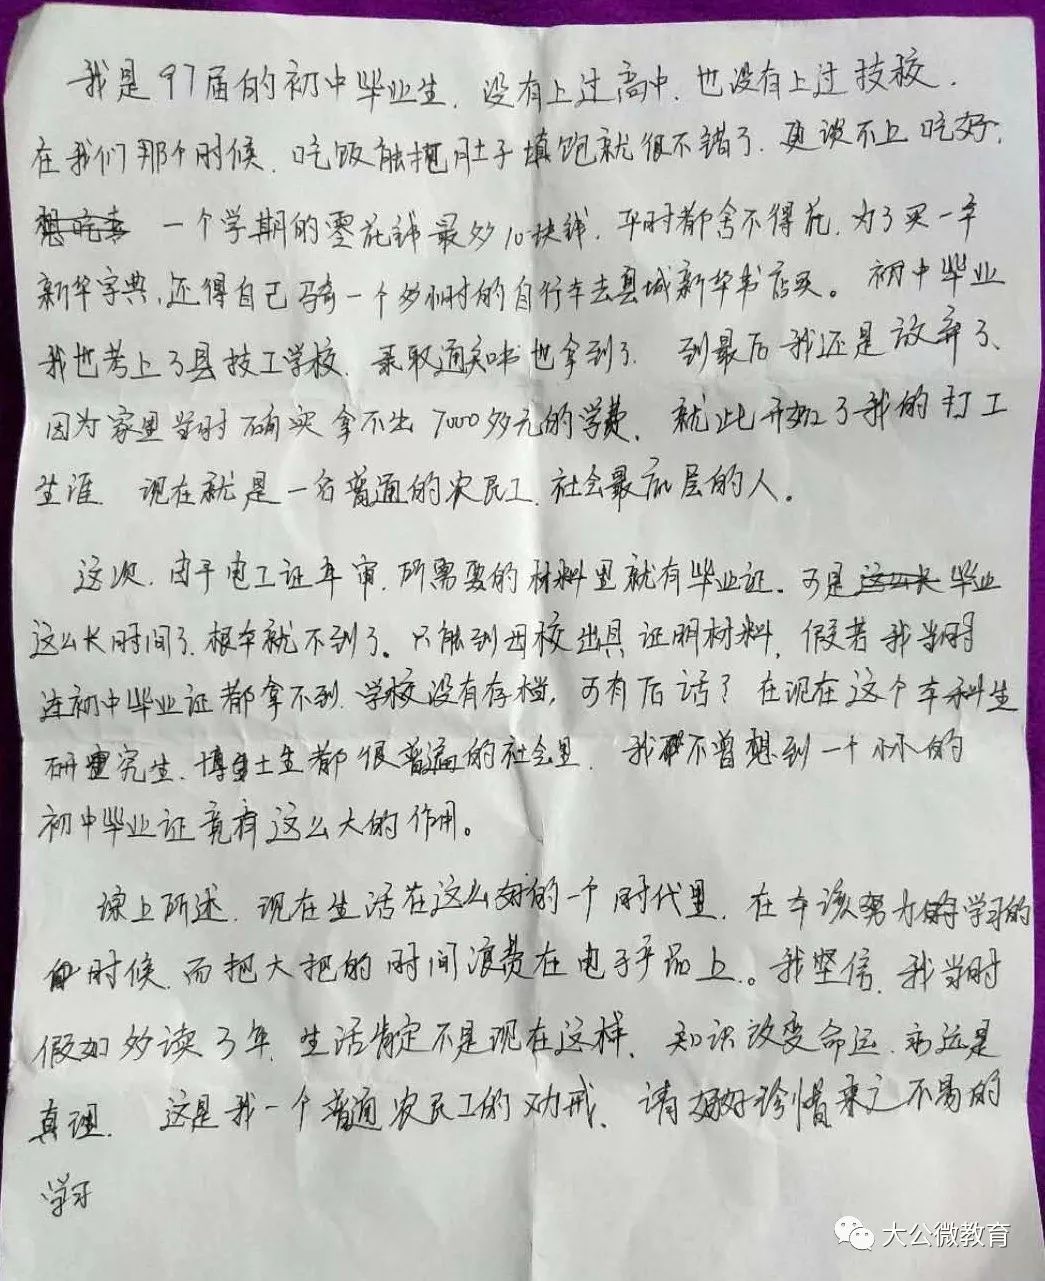 我是97届的初中毕业生，没有上过高中，也没有上过技校，
在我们那个时候，吃饭能把肚子填饱就很不错了，更谈不上吃好，
一个学期的零花钱最多10块钱，平时都舍不得花，为了买一本
新华字典，还得自己骑一个多小时的自行车去县城新华书店买。初中毕业
我也考上了县技工学校，录取通知书也拿到了，到最后我还是放弃了、
因为家里当时确实拿不出7000多元的学费，就此开始了我的打工
生涯，现在就是一名普通的农民工，社会最底层的人。
这次，由于电工证年审，所需要的材料里就有毕业证。可是毕业
这么长时间了，根本就不到了。只能到母校出具证明材料，假若我当时
连初中毕业证都拿不到，学校没有存档，可有后话？在现在这个本科生
研究生、博士生都很普遍的社会里，我不曾想到一个小小的
初中毕业证竟有这么大的作用。
综上所述，现在生活在这么好的一个时代里，在本该努力的学习的
时候，而把大把的时间浪费在电子产品上。我坚信，我当时
假如多读3年，生活肯定不是现在这样、知识改变命运，永远是
真理，这是我一个普通农民工的劝戒、请好好珍惜来之不易的
学习
大公微教育